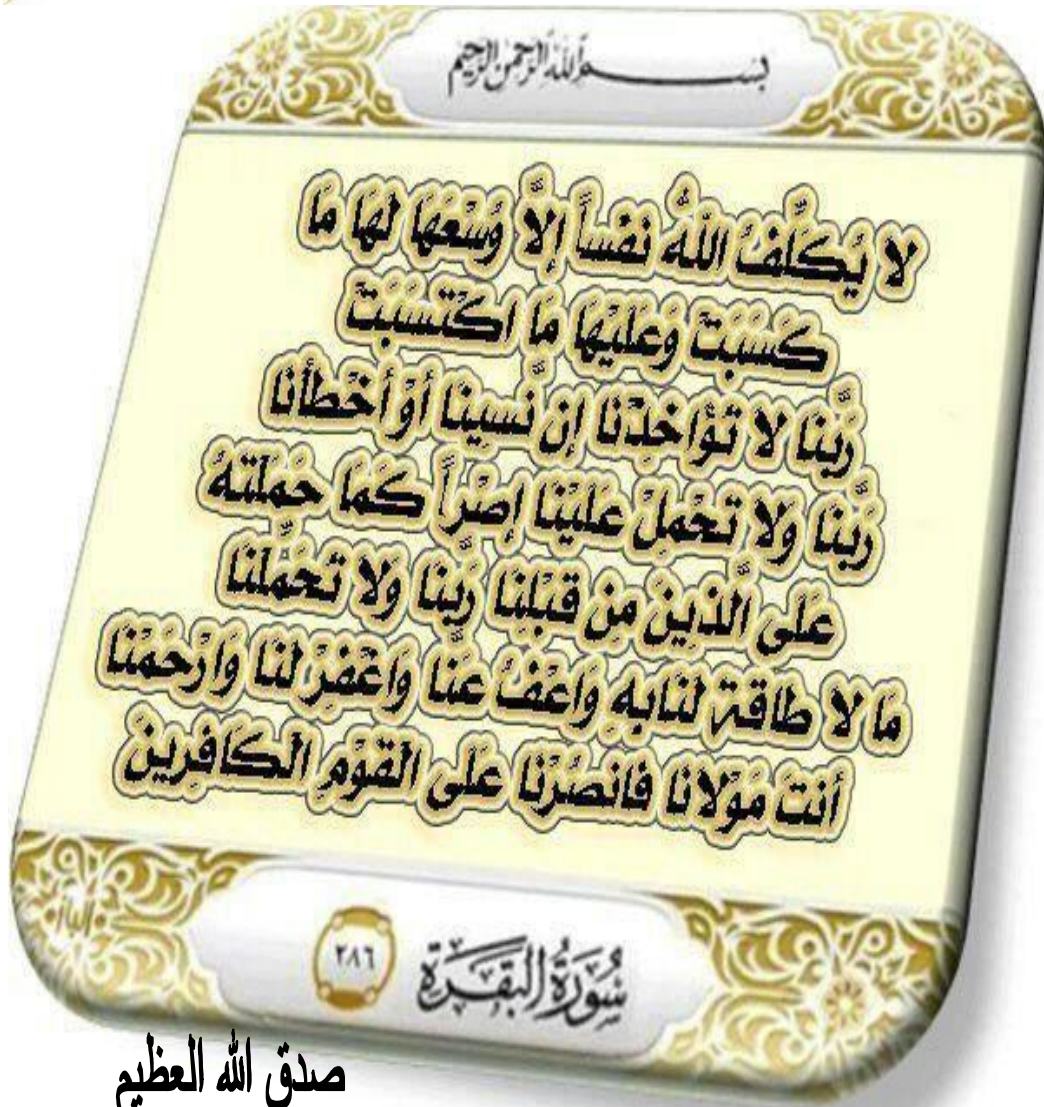 بسم الله الرحمن الرحيم
لا يُكَلِّفُ اللّهُ نَفْساً إِلاَّ وُسْعَهَا لَهَا مَا
كَسَبَتْ وَعَلَيْهَا مَا اكْتَسَبَتْ
رَبَّنَا لا تُؤَاخِذْنَا إِن نَّسِينَا أَوْ أَخْطَأْنَا
رَبَّنَا وَلا تَحْمِلْ عَلَيْنَا إِصْراً كَمَا حَمَلْتَهُ
عَلَى الَّذِينَ مِن قَبْلِنَا رَبَّنَا وَلا تُحَمِّلْنَا
مَا لا طَاقَةَ لَنَا بِهِ وَاعْفُ عَنَّا وَاغْفِرْ لَنَا وَارْحَمْنَا
أَنتَ مَوْلانَا فَانصُرْنَا عَلَى الْقَوْمِ الْكَافِرِينَ
سُورَةُ الْبَقَرَةِ ٢٨٦
صدق الله العظيم